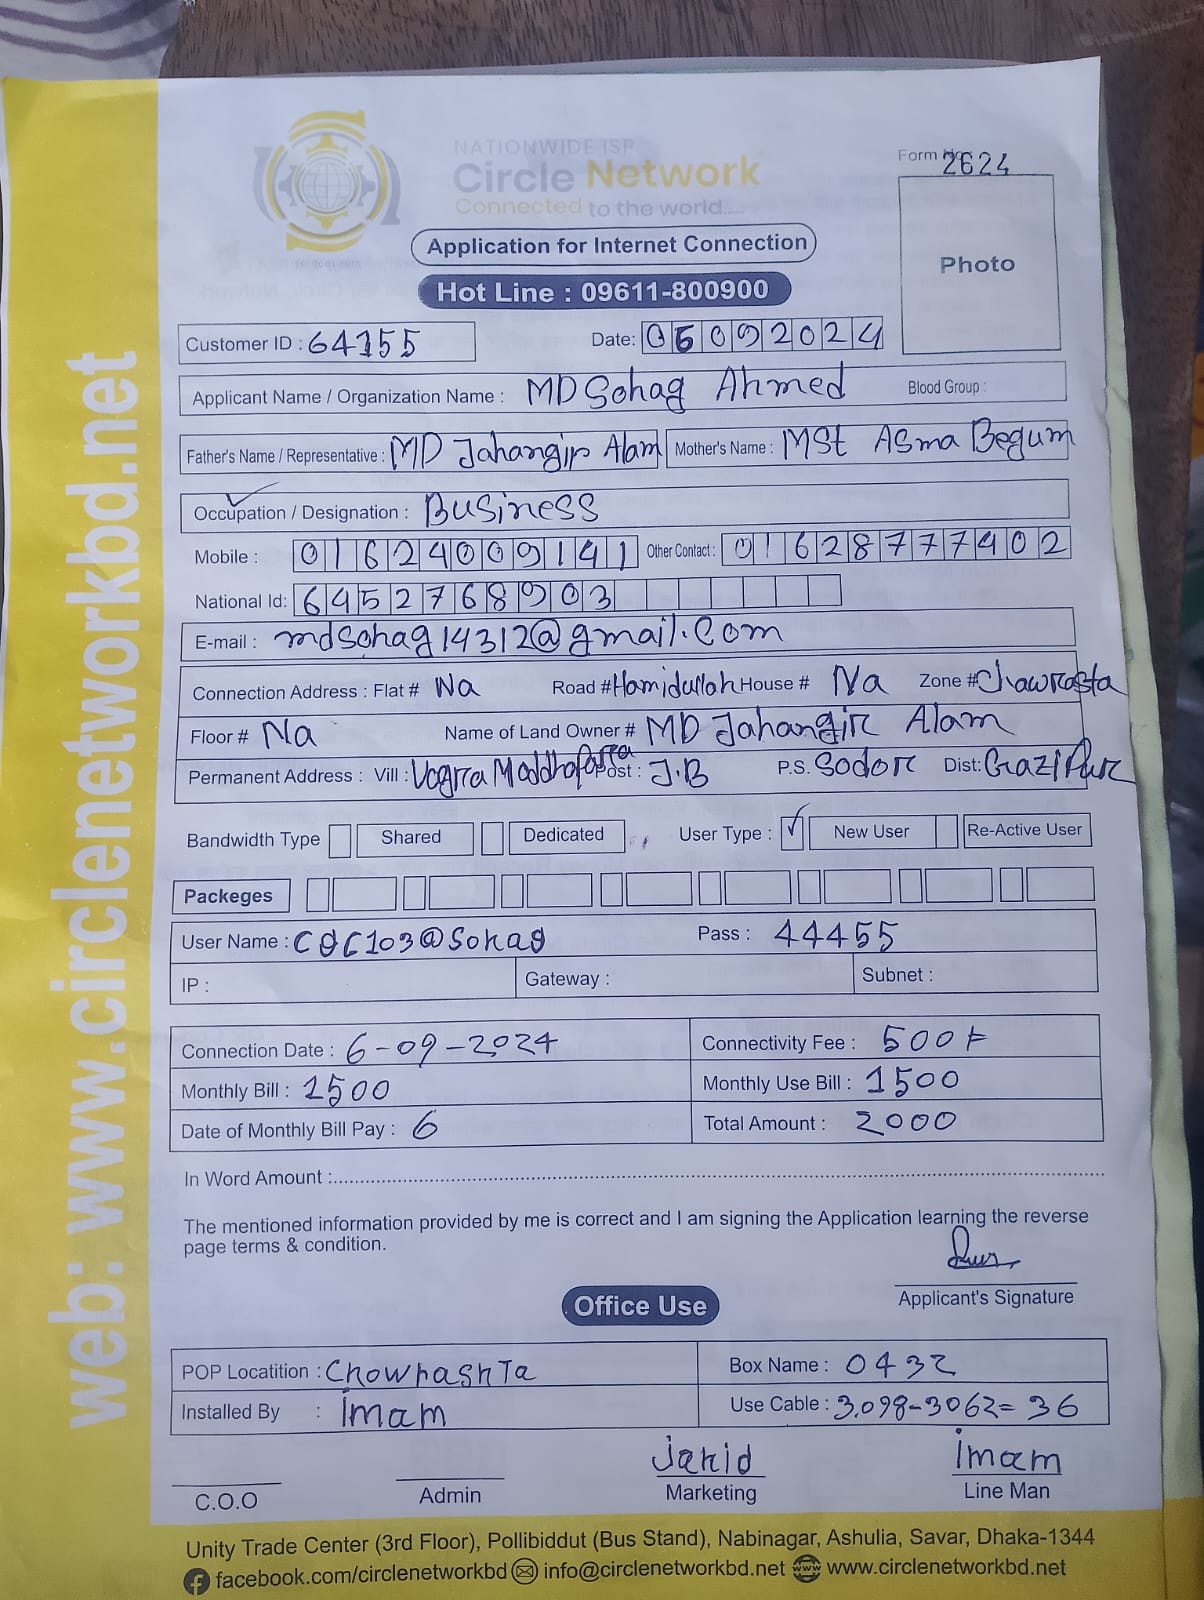 web: www.circlenetworkbd.net
NATIONWIDE ISP
Circle Network
Connected to the world.....
Form No 2624
Photo
Application for Internet Connection
Hot Line : 09611-800900
Customer ID : 64155 Date: 05092024
Applicant Name / Organization Name : MD Sohag Ahmed Blood Group :
Father's Name / Representative : MD Jahangir Alam Mother's Name : MSt Asma Begum
Occupation / Designation : Business
Mobile : 01624009141 Other Contact : 01628777402
National Id: 6452768903
E-mail : mdsohag14312@gmail.com
Connection Address : Flat # Na Road # Hamidullah House # Na Zone # Chawrasta
Floor # Na Name of Land Owner # MD Jahangir Alam
Permanent Address : Vill : Vogra Maddhofara Post : J.B P.S. Sodor Dist: GraziPur
Bandwidth Type Shared Dedicated User Type : ✓ New User Re-Active User
Packeges
User Name : @Sohag Pass : 44455
IP : Gateway : Subnet :
Connection Date : 6-09-2024 Connectivity Fee : 500
Monthly Bill : 1500 Monthly Use Bill : 1500
Date of Monthly Bill Pay : 6 Total Amount : 2000
In Word Amount :
The mentioned information provided by me is correct and I am signing the Application learning the reverse
page terms & condition.
Applicant's Signature
Office Use
POP Locatition : Chowrashta Box Name : 0432
Installed By : imam Use Cable : 3.098-3062= 36
jahid imam
C.O.O Admin Marketing Line Man
Unity Trade Center (3rd Floor), Pollibiddut (Bus Stand), Nabinagar, Ashulia, Savar, Dhaka-1344
facebook.com/circlenetworkbd info@circlenetworkbd.net www.circlenetworkbd.net